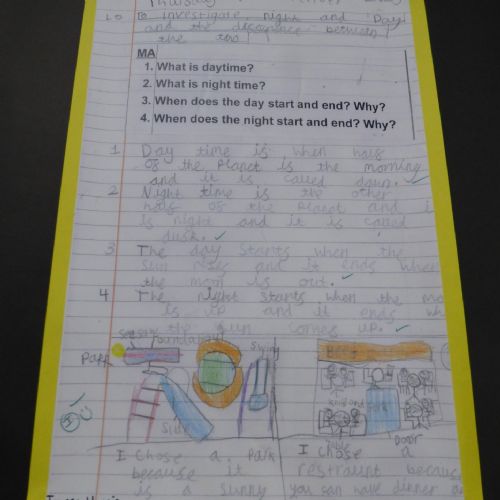 Thursday
L.O To investigate night and Day
and the difference between
the two
MA
1. What is daytime?
2. What is night time?
3. When does the day start and end? Why?
4. When does the night start and end? Why?
1 Day time is when half
of the Planet is the morning
and it is called dawn.
2 Night time is the other
half of the Planet and i
is night and it is called
dusk.
3 The day starts when the
sun and it ends when
the moon is out.
4 The night starts when the mo
is up and it ends wh
the sun comes up.
Park
Swing
Slide
Door
I Chose a Park
because it
is a sunny
I Chose a
restraunt becaus
you can have dinner a